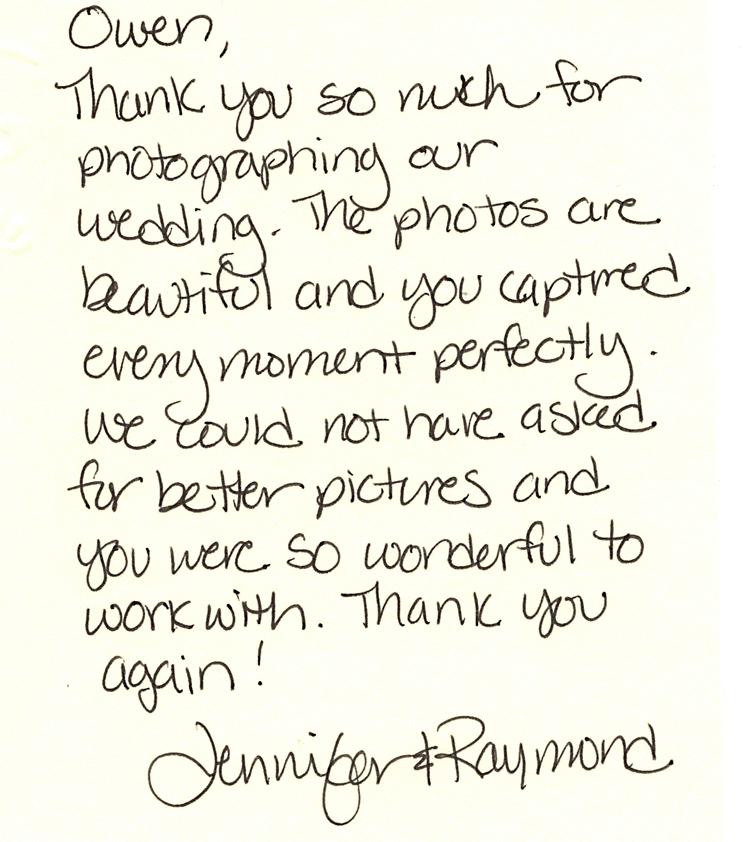 Owen,
Thank you so much for
photographing our
wedding. The photos are
beautiful and you captured
every moment perfectly.
We could not have asked
for better pictures and
you were so wonderful to
work with. Thank you
again!
Jennifer & Raymond